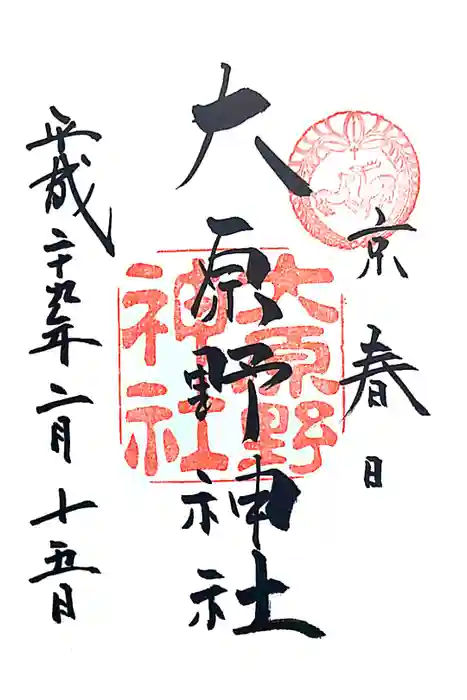 京春日
大原野神社
大原野
神社
平成二十九年二月十五日